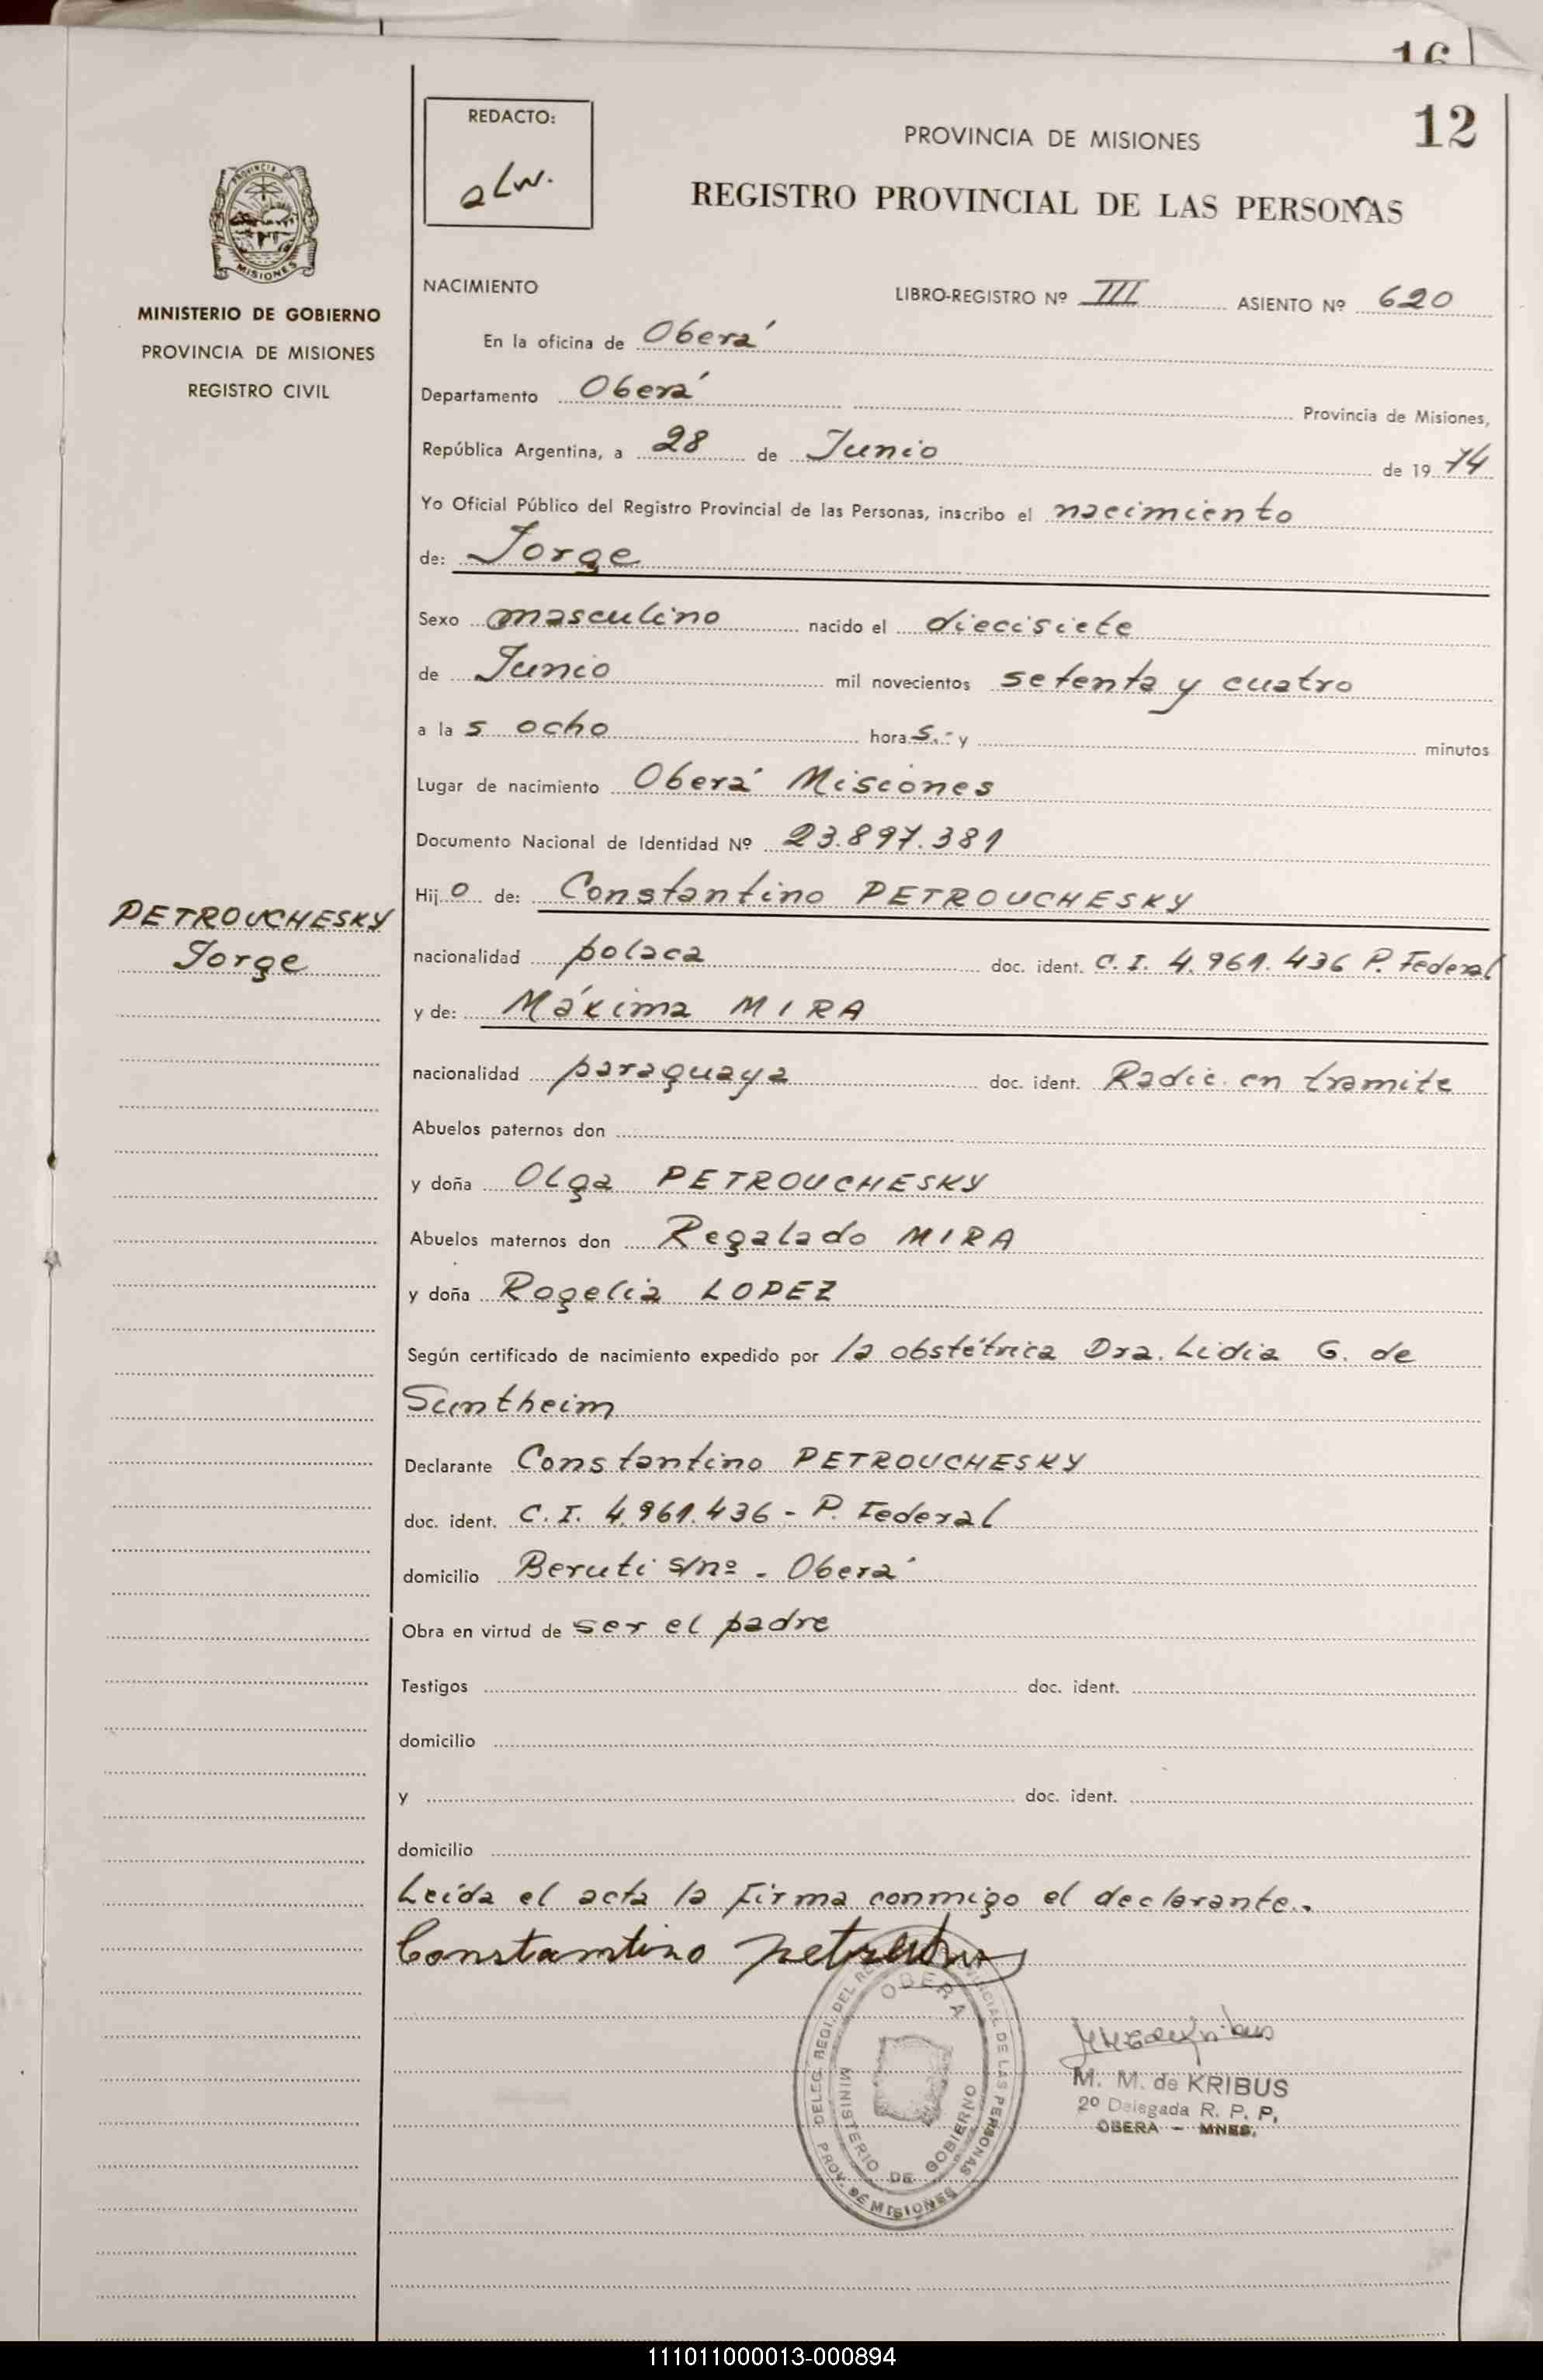 16
12
REDACTO:
PROVINCIA DE MISIONES
REGISTRO PROVINCIAL DE LAS PERSONAS
PROVINCIA
MISIONES
MINISTERIO DE GOBIERNO
PROVINCIA DE MISIONES
REGISTRO CIVIL
NACIMIENTO LIBRO-REGISTRO Nº III ASIENTO Nº 620
En la oficina de Oberá
Departamento Oberá Provincia de Misiones,
República Argentina, a 28 de Junio de 19 74
Yo Oficial Público del Registro Provincial de las Personas, inscribo el nacimiento
de: Jorge
Sexo masculino nacido el diecisiete
de Junio mil novecientos setenta y cuatro
a la s ocho hora s.- y minutos
Lugar de nacimiento Oberá Misiones
Documento Nacional de Identidad Nº 23.897.381
Hij o de: Constantino PETROUCHESKY
PETROUCHESKY
Jorge
nacionalidad polaca doc. ident. C.I. 4.961.436 P. Federal
y de: Máxima MIRA
nacionalidad paraguaya doc. ident. Radic. en tramite
Abuelos paternos don
y doña Olga PETROUCHESKY
Abuelos maternos don Regalado MIRA
y doña Rogelia LOPEZ
Según certificado de nacimiento expedido por la obstétrica Dra. Lidia G. de
Suntheim
Declarante Constantino PETROUCHESKY
doc. ident. C.I. 4.961.436 - P. Federal
domicilio Beruti s/nº - Oberá
Obra en virtud de ser el padre
Testigos doc. ident.
domicilio
y doc. ident.
domicilio
Leída el acta la firma conmigo el declarante.
Constantino
DELEG. REGI. DEL PROVINCIAL DE LAS PERSONAS
OBERA
MINISTERIO DE GOBIERNO
PROV. DE MISIONES
M. M. de KRIBUS
2º Delegada R. P. P.
OBERA - MNES.
111011000013-000894